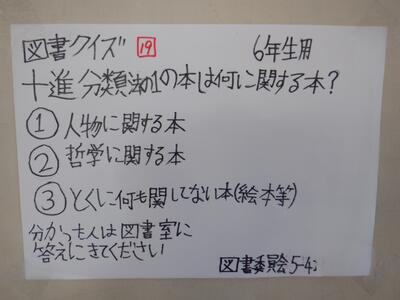 図書クイズ 19 6年生用
十進分類法の1の本は何に関する本?
① 人物に関する本
② 哲学に関する本
③ とくに何も関してない本(絵本等)
分かっも人は図書室に
答えにきてください
図書委員会5-4